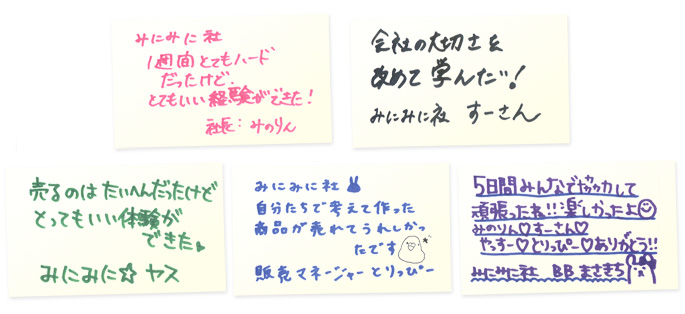 みにみに社
1週間とてもハード
だったけど、
とてもいい経験ができた!
社長:みのりん
会社の大切さを
改めて学んだ!
みにみに社 すーさん
売るのはたいへんだったけど
とってもいい体験が
できた
みにみに☆ ヤス
みにみに社
自分たちで考えて作った
商品が売れてうれしかっ
たです
販売マネージャーとりっぴー
5日間みんなで協力して
頑張ったね!!楽しかったよ☺
みのりん♡すーさん♡
やっすー♡とりっぴー♡ありがとう!!
みにみに社 BBまさきち